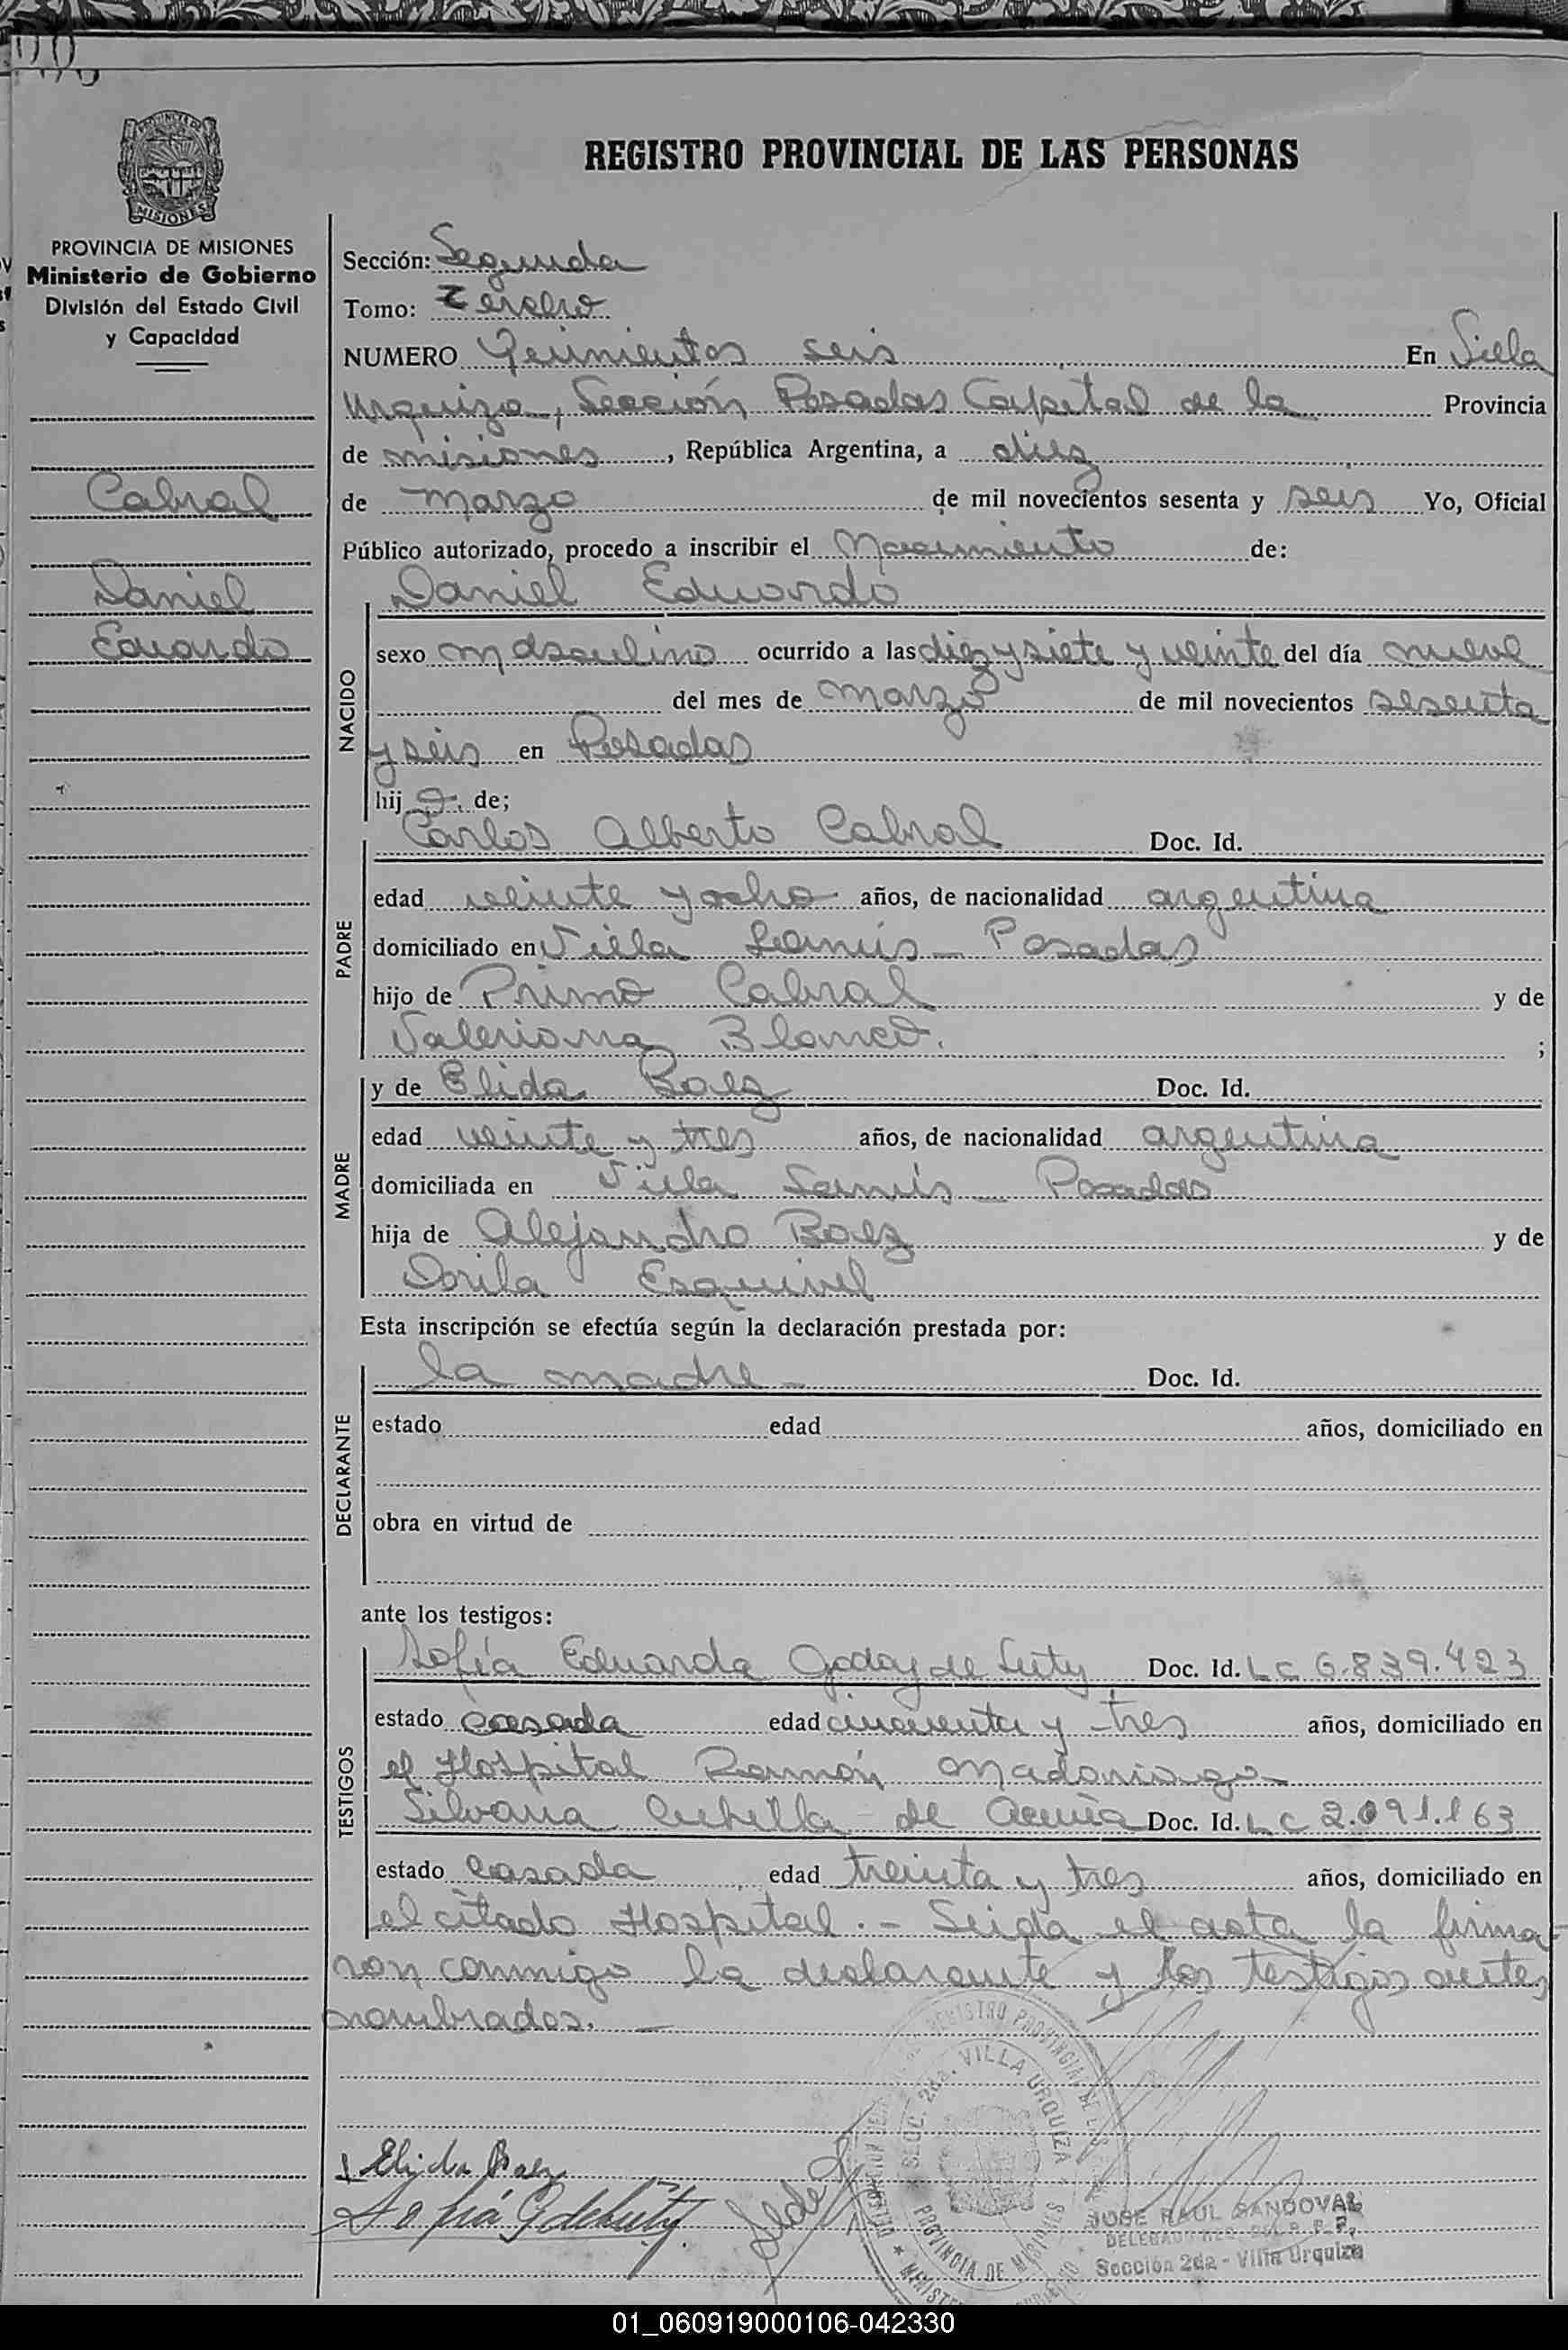 REGISTRO PROVINCIAL DE LAS PERSONAS
MISIONES
PROVINCIA DE MISIONES
Ministerio de Gobierno
División del Estado Civil
y Capacidad
Cabral
Daniel
Eduardo
Sección: Segunda
Tomo: Tercero
NUMERO Quinientos seis En Villa
Urquiza, Sección Posadas Capital de la Provincia
de misiones, República Argentina, a diez
de marzo de mil novecientos sesenta y seis Yo, Oficial
Público autorizado, procedo a inscribir el Nacimiento de:
NACIDO
Daniel Eduardo
sexo masculino ocurrido a las diez y siete y veinte del día nueve
del mes de marzo de mil novecientos sesenta
y seis en Posadas
hijo de;
PADRE
Carlos Alberto Cabral Doc. Id.
edad veinte y ocho años, de nacionalidad argentina
domiciliado en Villa Lanús - Posadas
hijo de Primo Cabral y de
Valeriana Blanco. ;
MADRE
y de Elida Baez Doc. Id.
edad veinte y tres años, de nacionalidad argentina
domiciliada en Villa Lanús - Posadas
hija de Alejandro Baez y de
Dorila Esquivel
Esta inscripción se efectúa según la declaración prestada por:
DECLARANTE
la madre - Doc. Id.
estado edad años, domiciliado en
obra en virtud de
ante los testigos:
TESTIGOS
Sofía Eduarda Godoy de Luty Doc. Id. LC 6.839.423
estado casada edad cincuenta y tres años, domiciliado en
el Hospital Ramón Madariaga -
Silvana Cubilla de Acuña Doc. Id. LC 2.091.163
estado casada edad treinta y tres años, domiciliado en
el citado Hospital. - Leida el acta la firma-
ron conmigo la declarante y los testigos antes
nombrados. -
Elida Baez
Sofiá G de Luty
SECC. 2da. VILLA URQUIZA
PROVINCIA DE MISIONES
REGISTRO PROVINCIAL DE LAS
JOSE RAUL SANDOVAL
Sección 2da - Villa Urquiza
01_060919000106-042330